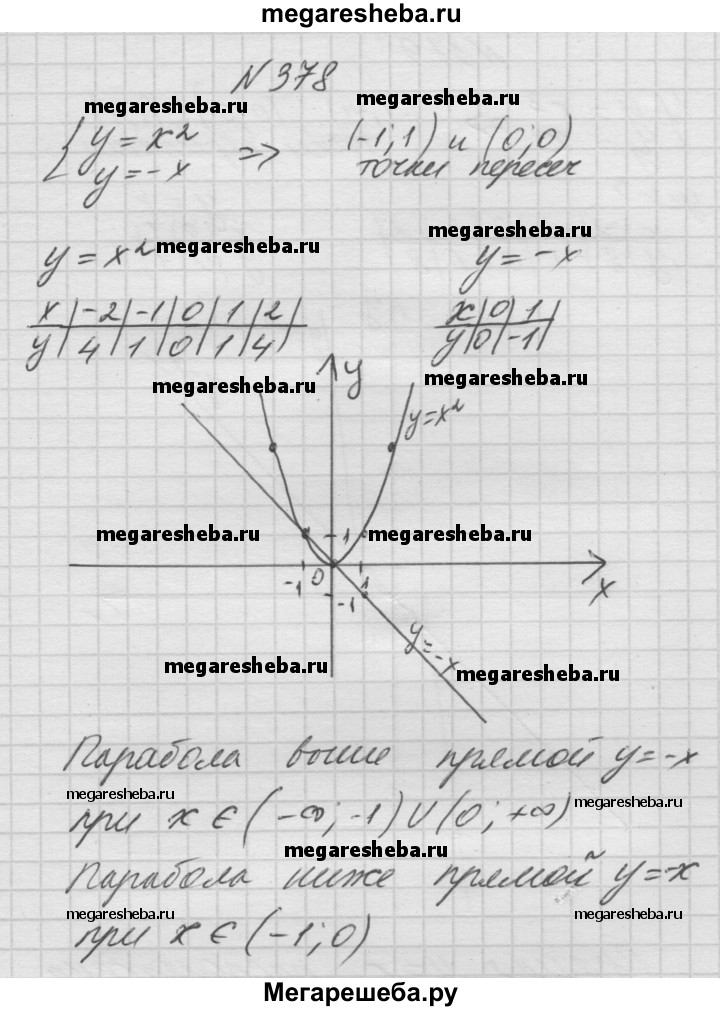 megaresheba.ru
N 378
megaresheba.ru megaresheba.ru
{ y = x² => (-1; 1) и (0; 0)
y = -x точки пересеч
y = x² megaresheba.ru megaresheba.ru
y = -x
x | -2 | -1 | 0 | 1 | 2 |
y | 4 | 1 | 0 | 1 | 4 |
x | 0 | 1 |
y | 0 | -1 |
megaresheba.ru y megaresheba.ru
y=x²
megaresheba.ru 1 megaresheba.ru
-1 0 1 x
-1
y=-x
megaresheba.ru megaresheba.ru
Парабола выше прямой y=-x
megaresheba.ru megaresheba.ru
при x ∈ (-∞; -1) U (0; +∞)
megaresheba.ru
Парабола ниже прямой y=-x
megaresheba.ru megaresheba.ru
при x ∈ (-1; 0)
Мегарешеба.ру